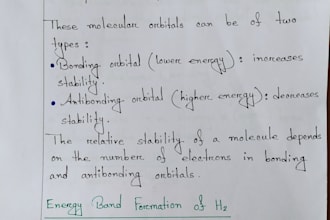 These molecular orbitals can be of two
types :
• Bonding orbital (lower energy) : increases
stability.
• Antibonding orbital (higher energy) : decreases
stability.
The relative stability of a molecule depends
on the number of electrons in bonding
and antibonding orbitals.
Energy Band Formation of H₂